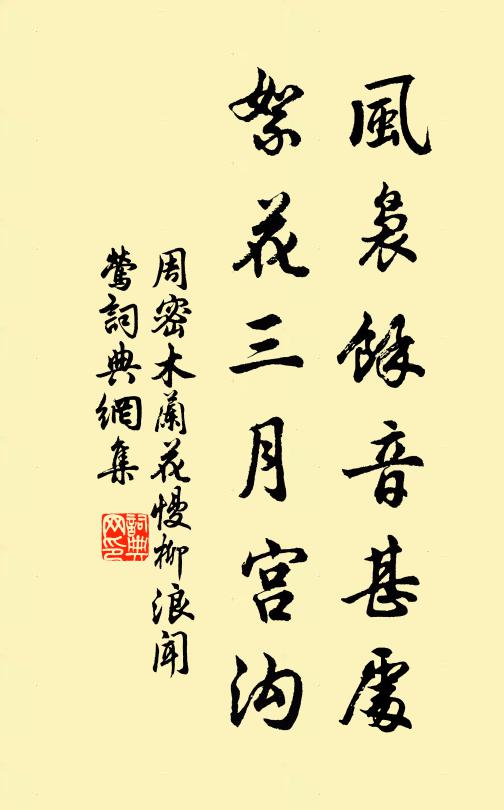 風裊餘音甚處
絮花三月宮沟
周密木蘭花慢柳浪聞
鶯詞典網集
詞典
网印